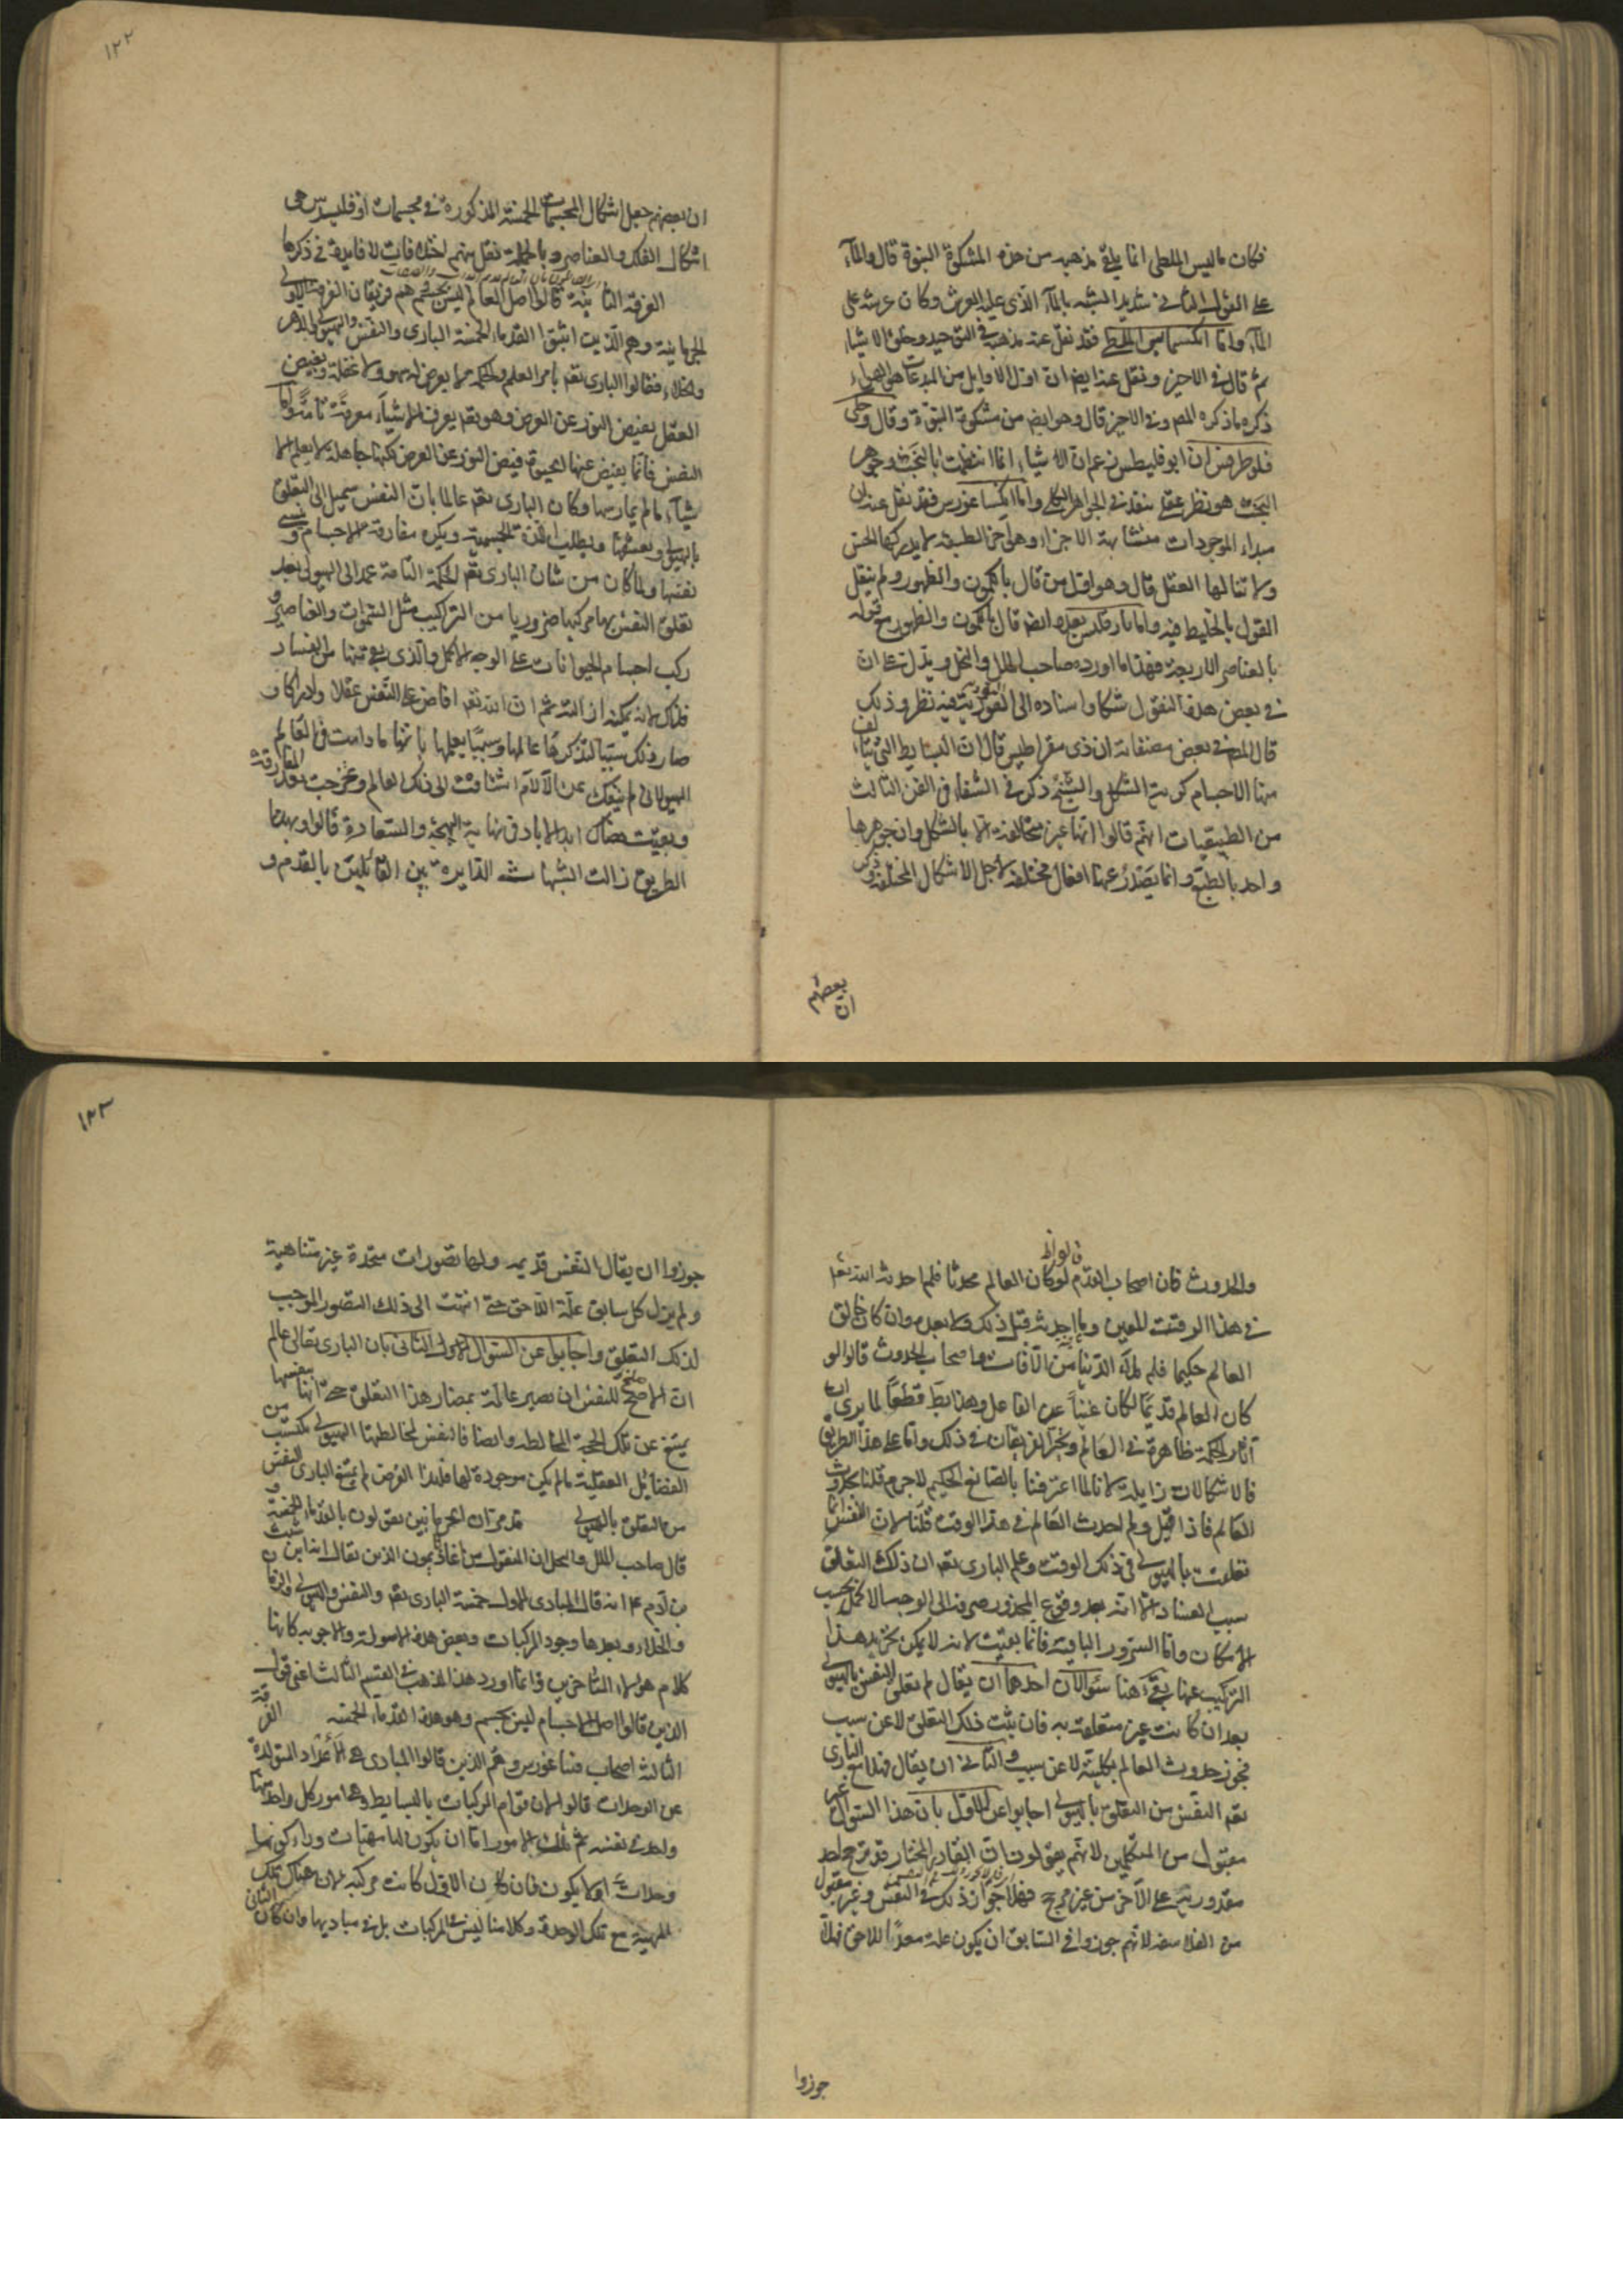 فكان ثاليس الملطي انما يلقى مذهبه من هذه المشكوة النبوة قال والماء
على القول الثاني شديد الشبه بالماء الذي عليه العرش وكان عرشه على
الماء واما انكسمايس الملطي فقد نقل عنه مذهبه في التوحيد وخلق الاشياء
ثم قال في الاخير ونقل عنه ايضا ان اول الاوايل من المبدعات هو الهواء
ذكره ماذكره المصر وفي الاخير قال وهو ايضا من مشكوة النبوة وقال وحكى
فلوطرخس ان ابو فليطس زعم ان الاشياء انما انتظمت بالبخت وجوهر
البخت هو نظر عقلي ينفذ في الجواهر الكلي واما انكسا غورس فقد نقل عنه ان
مبداء الموجودات متشابهة الاجزاء وهي اجزاء لطيفة لا يدركها الحس
ولا تنالها العقل قال وهو اول من قال بالكمون والظهور ولم ينقل
القول بالخليط فيه واما بارقلس بعده ايضا قال بالكمون والظهور مع قوله
بالعناصر الاربعة فهذا ما اورده صاحب الملل والنحل ويدل على ان
في بعض هذه النقول شكا واسناده الى التورية فيه نظر وذلك
قال المص في بعض مصنفاته ان ذي مقراطيس قال ان البسايط التي يتالف
منها الاجسام كرية الشكل والشيخ ذكر في الشفاء في الفن الثالث
من الطبيعيات انهم قالوا انها غير مختلفة الا بالشكل وان جوهرها
واحد بالطبع وانما يصدر عنها افعال مختلفة لاجل الاشكال المختلفة وذكر
ان بعضهم
١٢٢
ان بعضهم جعل اشكال المجسمات الخمسة المذكورة في مجسمات اوقليدس هي
اشكال الفلك والعناصر وبالجملة نقل عنهم اختلافات لا فايدة في ذكرها
الفرقة الثانية قالوا اصل العالم ليس بجسم هم فريقان الفرقة الاولى
الجرمانية وهم الذين اثبتوا القدماء الخمسة الباري والنفس والهيولى والدهر
والخلاء فقالوا الباري تعم تام العلم والحكمة لا يعرض له سهو ولا غفلة ويفيض
العقل كفيض النور عن القرص وهو تعم يعرف الاشياء معرفة تامة واما
النفس فانما يفيض عنها الحيوة فيض النور عن القرص لكنها جاهلة لا يعلم الا
شياء مالم يمارسها وكان الباري تعم عالما بان النفس سيميل الى التعلق
بالهيولى ويعشقها ويطلب اللذة الجسمية ويكره مفارقة الاجسام وينسى
نفسها ولما كان من شان الباري تعم الحكمة التامة عمد الى الهيولى بعد
تعلق النفس بها فركبها ضروبا من التركيب مثل السموات والعناصر و
ركب اجسام الحيوانات على الوجه الاكمل والذي بقي فيها من الفساد
فذلك لانه لا يمكن ازالته ثم ان الله تعم افاض على النفس عقلا وادراكا و
صار ذلك سببا لتذكرها عالمها وسببا يعلمها بانها ما دامت في العالم
الهيولاني لم ينفك عن الآلام اشتاقت الى ذلك العالم وعرجت بعد المفارقة
وبقيت هناك ابد الاباد في نهاية البهجة والسعادة قالوا وبهذا
الطريق زالت الشبهات الدايرة بين القائلين بالقدم و
والحدوث فان اصحاب القدم قالوا لو كان العالم محدثا فلم احدثه الله تعم
في هذا الوقت المعين وما احدثه قبل ذلك ولا بعده وان كان خالق
العالم حكيما فلم ملاء الدنيا من الآفات واصحاب الحدوث قالوا لو
كان العالم قديما لكان غنيا عن الفاعل وهذا بط قطعا لما يرى ان
آثار الحكمة ظاهرة في العالم وتحير الفريقان في ذلك واما على هذا الطريق
فالاشكالات زايلة لانا لما اعترفنا بالصانع الحكيم لا جرم قلنا بحدوث
العالم فاذا قيل ولم احدث العالم في هذا الوقت قلنا لان النفس انما
تعلقت بالهيولى في ذلك الوقت وعلم الباري تعم ان ذلك التعلق
سبب الفساد الا انه بعد وقوع المحذور صرفه الى الوجه الاكمل بحسب
الامكان واما الشرور الباقية فانما بقيت لانه لا يمكن تجريد هذا
التركيب عنها بقي هنا سئوالان احدهما ان يقال لم تعلق النفس بالهيولى
بعد ان كانت غير متعلقة به فان بثت ذلك التعلق لا عن سبب
فجوز حدوث العالم بكليته لا عن سبب والثاني ان يقال فهلا منع الباري
تعم النفس من التعلق بالهيولى اجابوا عن الاول بان هذا السئوال غير
مقبول من المتكلمين لانهم يقولون ان القادر المختار قد يرجح احد
مقدوريه على الآخر من غير مرجح فهلا جوزوا ذلك في النفس وغير مقبول
من الفلاسفة لانهم جوزوا في السابق ان يكون علة معدا للاحق فهلا
جوزوا
١٢٣
جوزوا ان يقال النفس قديمه ولها تصورات متجددة غير متناهية
ولم يزل كل سابق علة اللاحق حتى انتهت الى ذلك التصور الموجب
لذلك التعلق واجابوا عن السئوال الثاني بان الباري تعالى عالم
ان الاصلح للنفس ان تصير عالمة بمضار هذا التعلق حتى انها بنفسها
يمتنع عن تلك المخالطة وايضا فالنفس لمخالطتها الهيولى تكتسب من
الفضائل العقلية مالم يكن موجودة لها فلهذا الغرض لم يمنع الباري النفس
من التعلق بالهيولى قد مر ان الجرمانيين يقولون بالقدماء الخمسة و
قال صاحب الملل والنحل ان المنقول من غاذيمون الذي يقال انه شيث
بن آدم عم انه قال المبادي الاول خمسة الباري تعم والنفس والهيولى والزمان
والخلاء وبعدها وجود المركبات وبعض هذه الاسولة والاجوبه كانها
كلام هؤلاء المتأخرين وانما اورد هذا المذهب في القسم الثالث اعني قول
الذين قالوا اصل الاجسام ليس بجسم وهو هذه القدماء الخمسة الفرقة
الثالثة اصحاب فيثاغورس وهم الذين قالوا المبادي هي الأعداد المتولدة
عن الوحدات قالوا لان قوام المركبات بالبسايط وهي امور كل واحد منها
واحد في نفسه ثم تلك الامور اما ان يكون لها مهيات وراء كونها
وحدات او لا يكون فان كان الاول كانت مركبة لان هناك تلك
المهية مع تلك الوحدة وكلامنا ليس في المركبات بل في مباديها وان كان الثاني